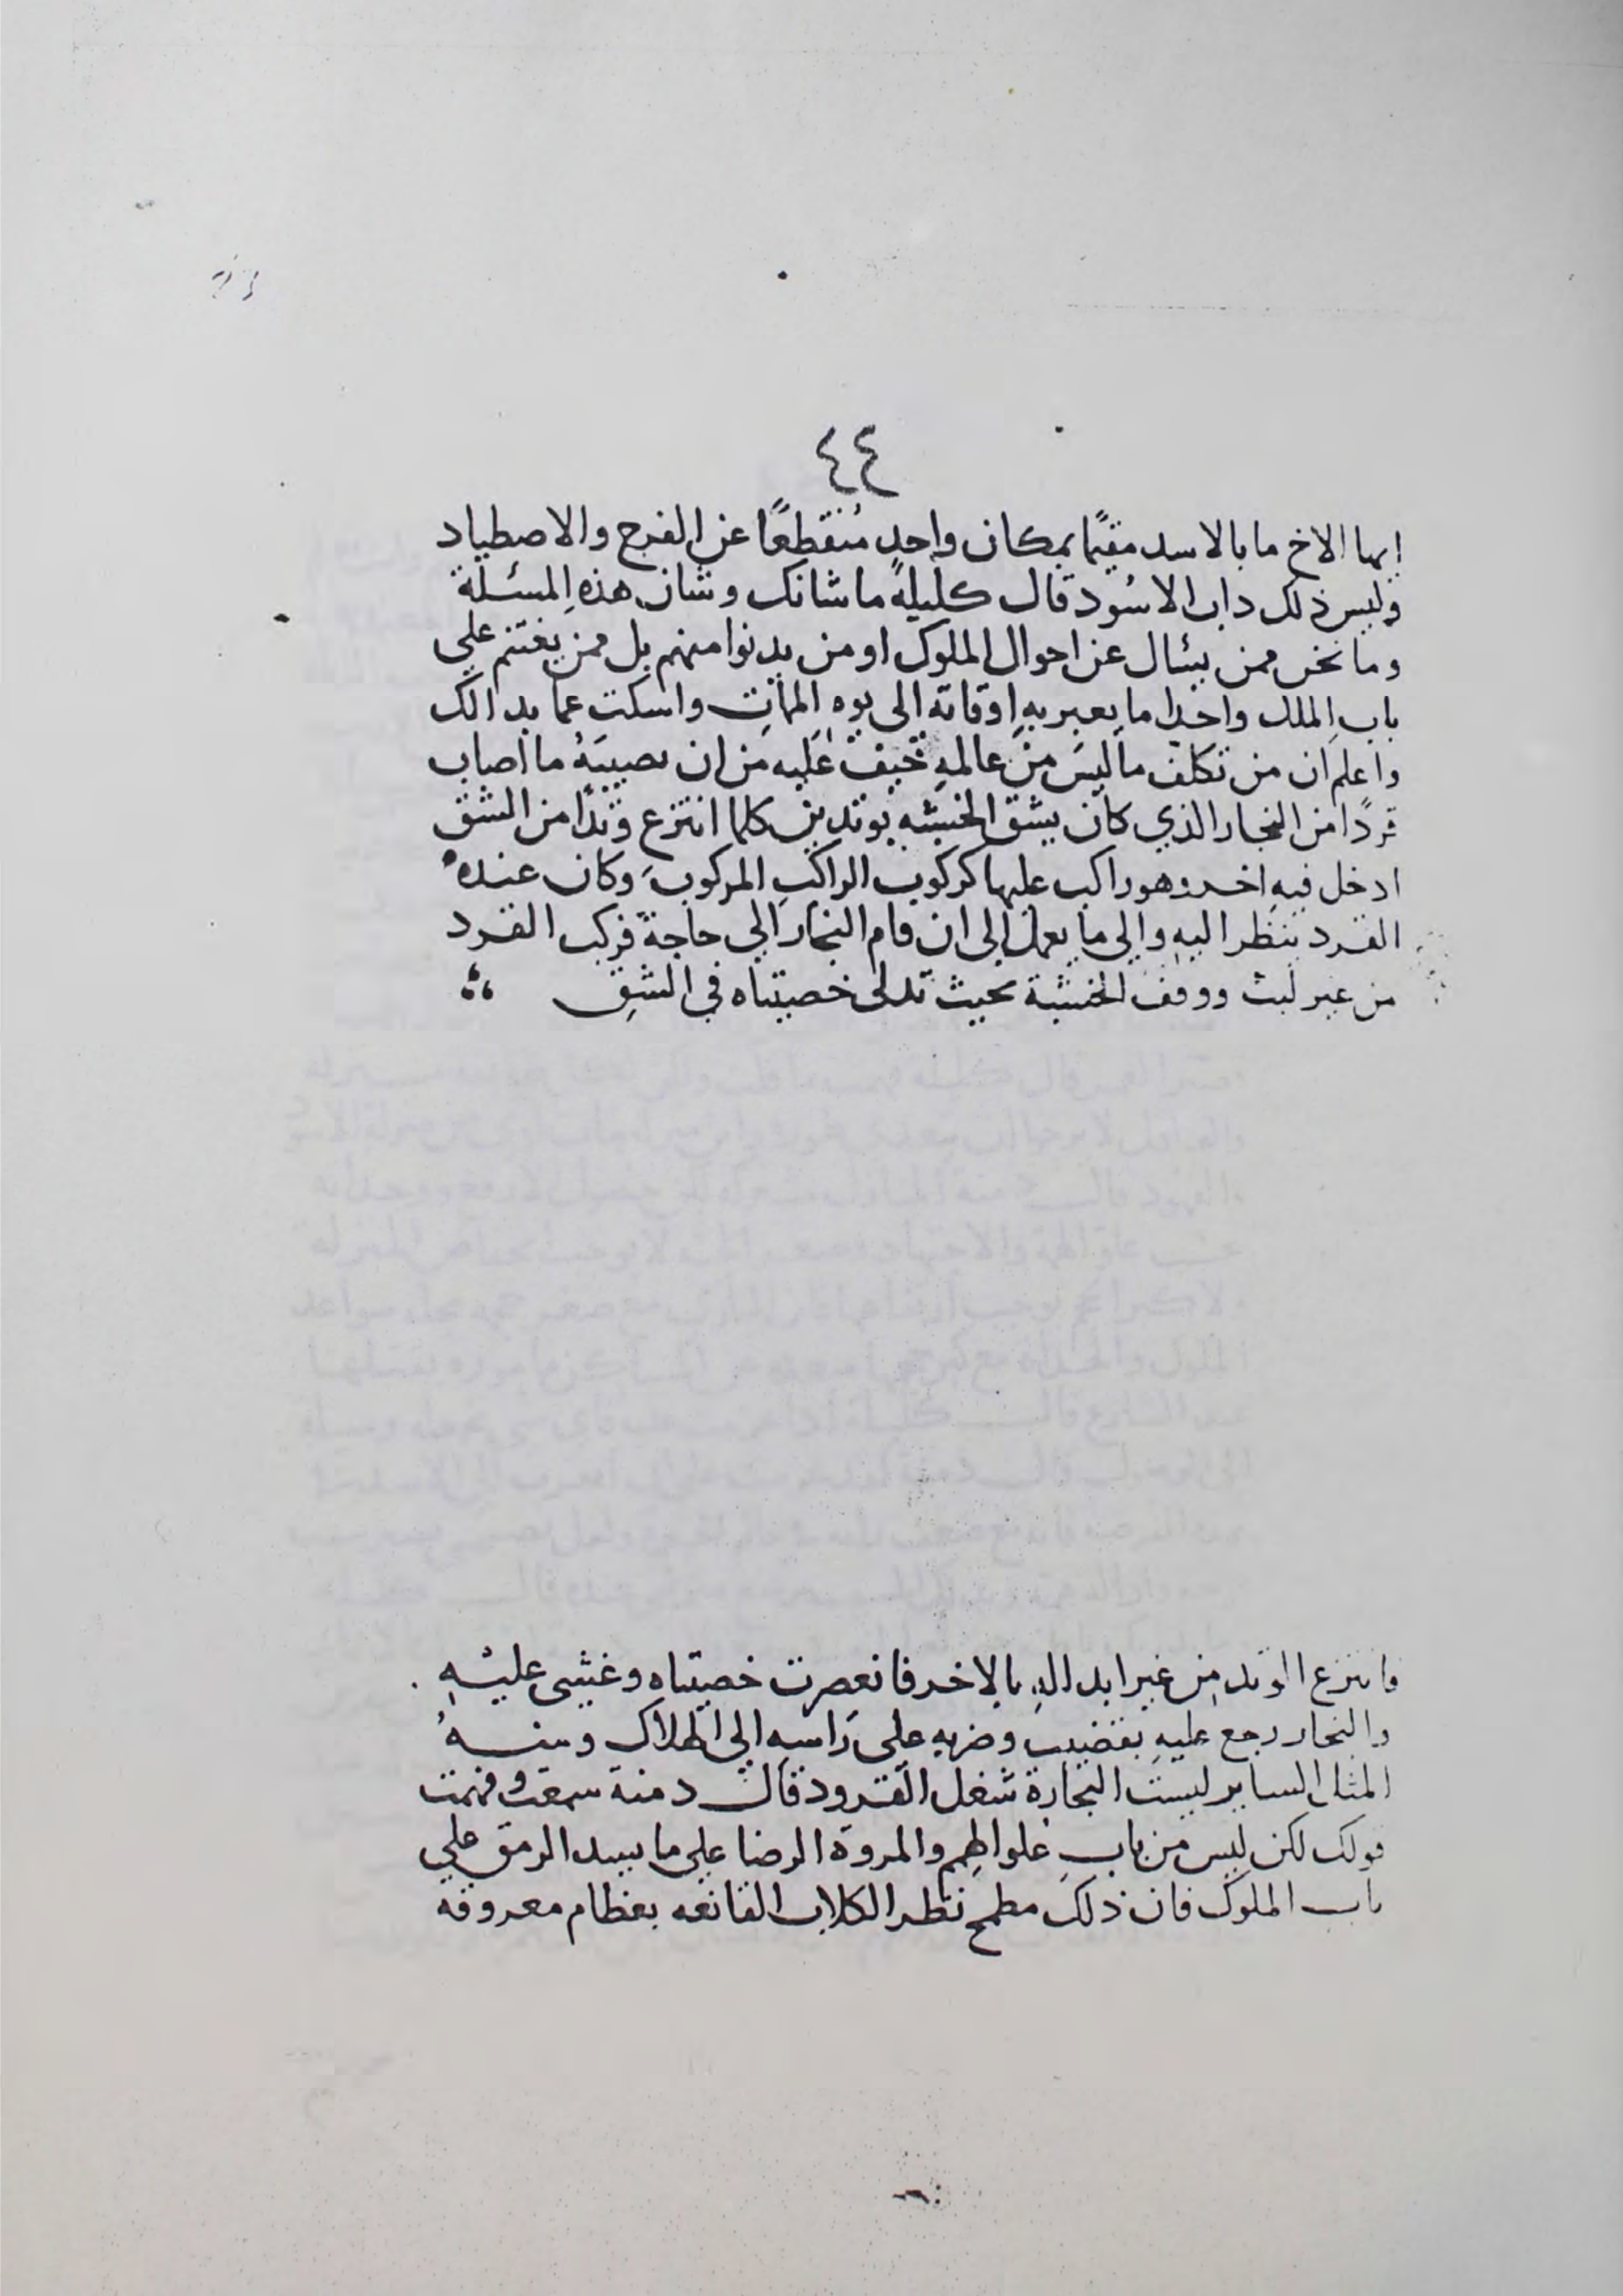 ٤٤
ايها الاخ ما بالاسد مقيمًا بمكان واحدٍ مُنقطعًا عن الفرح والاصطياد
وليس ذلك داب الاسُود قال كليلةً ما شانك وشان هذهِ المسئلة
وما نحن ممن يسٔال عن احوال الملوك او من يدنوا منهم بل ممن يغتنم علي
باب الملك واحدا ما يعبر بهِ اوقاته الى يوم المماتِ واسكت عما بدالك
واعلم ان من تكلف ما ليسَ من عالمهِ خيف عَليه من ان يصيبَهُ ما اصاب
قردًا من النجار الذي كان يشق الخشبه بوتدين كلما انتزع وتدًا من الشق
ادخل فيهِ اخر وهو راكب عليها كركوب الراكبِ المركوبَ وكان عندهُ
القرد ينظر اليهِ والي ما يعمل الى ان قام النجار الي حاجة فركب القرد
من غير لبث ووقف الخشبة بحيث تدلى خصيتاه في الشقِ
فانتزع الوتد من غير ابدالهِ بالاخر فانعصرت خصيتاه وغشي عليهِ
والنجار رجع عليهِ بقضيب وضربهِ على رَاسهِ الي الهلاك ومنهُ
المثال الساير ليست النجارة شغل القرود قال دمنة سمعت وفهمت
قولك لكن ليس من باب علو الهمم والمروة الرضا على ما يسد الرمق علي
باب الملوك فان ذلك مطمح نظر الكلاب القانعه بعظام معروقه